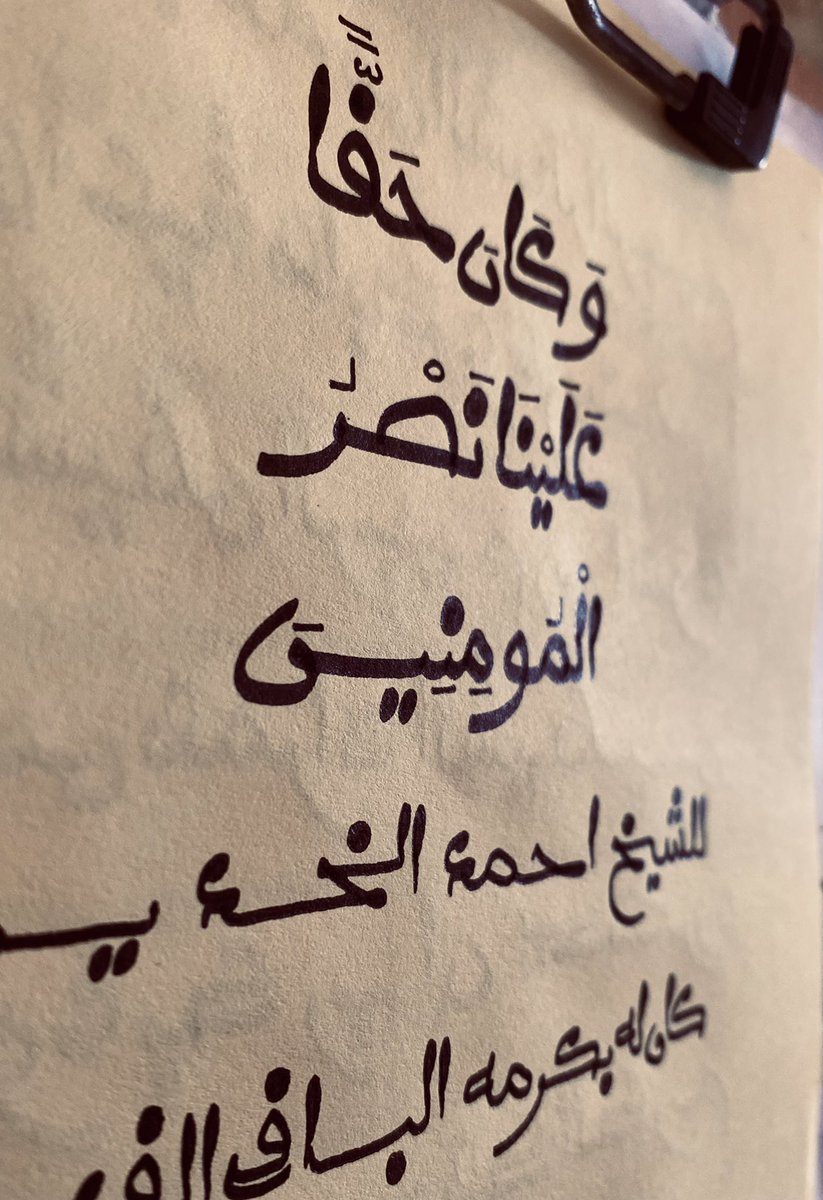 وَكَانَ حَقّاً
عَلَيْنَا نَصْرُ
الْمُومِنِينَ
للشيخ احمد الخديـ
كان له بكرمه الباقي